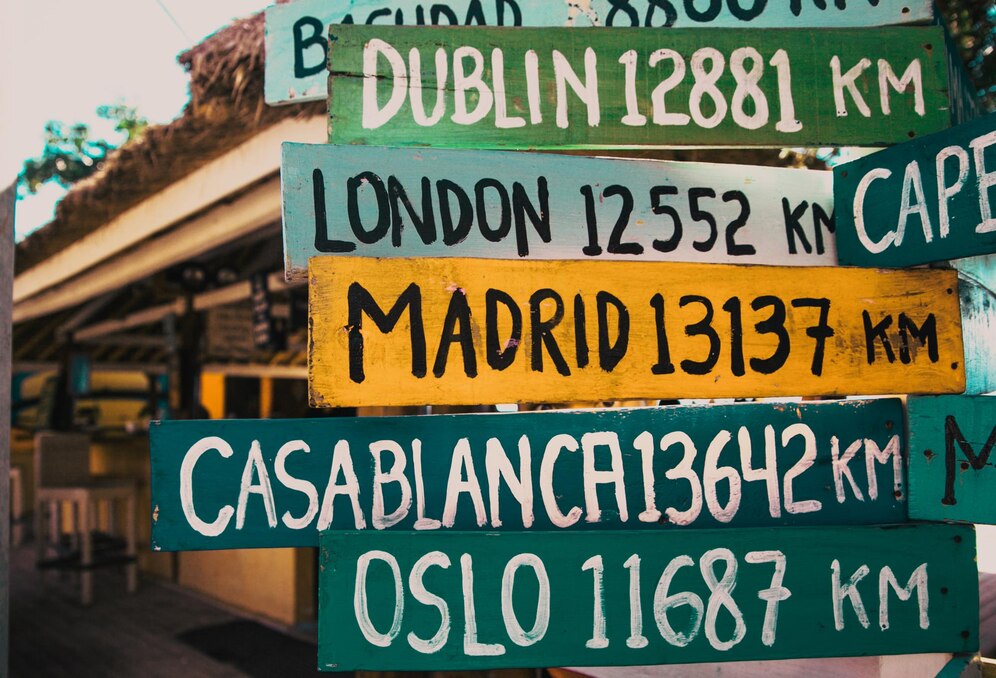 BAGHDAD 8860 KM
DUBLIN 12881 KM
LONDON 12552 KM
CAPE
MADRID 13137 KM
CASABLANCA 13642 KM
M
OSLO 11687 KM